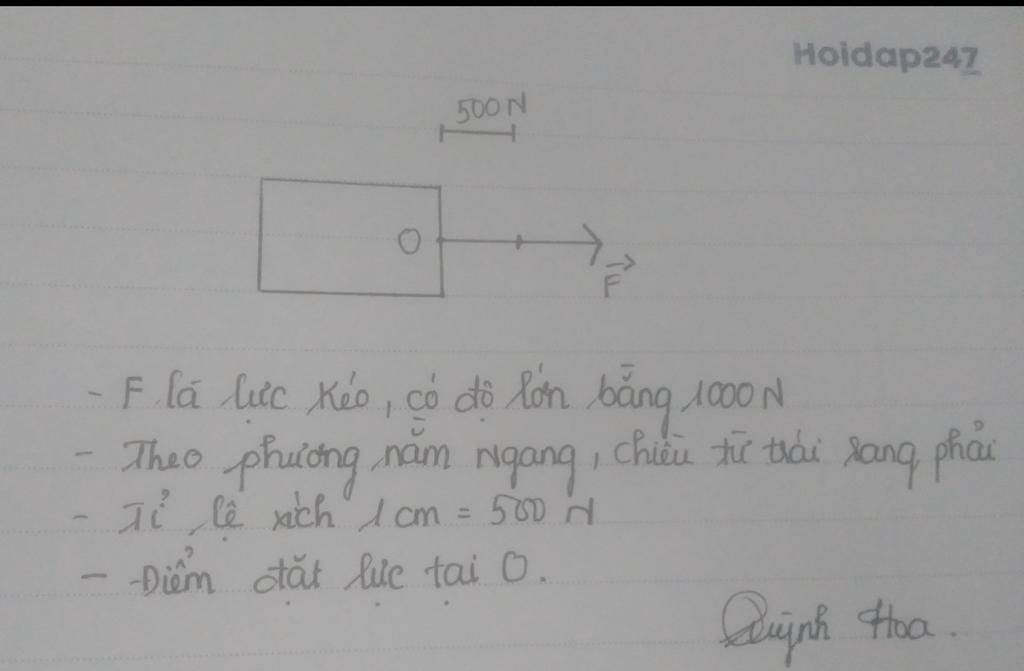 Hoidap247
500 N
O
F
- F là lực kéo, có độ lớn bằng 1000 N
- Theo phương nằm ngang, chiều từ trái sang phải
- Tỉ lệ xích 1 cm = 500 N
- Điểm đặt lực tại O.
Quỳnh Hoa.